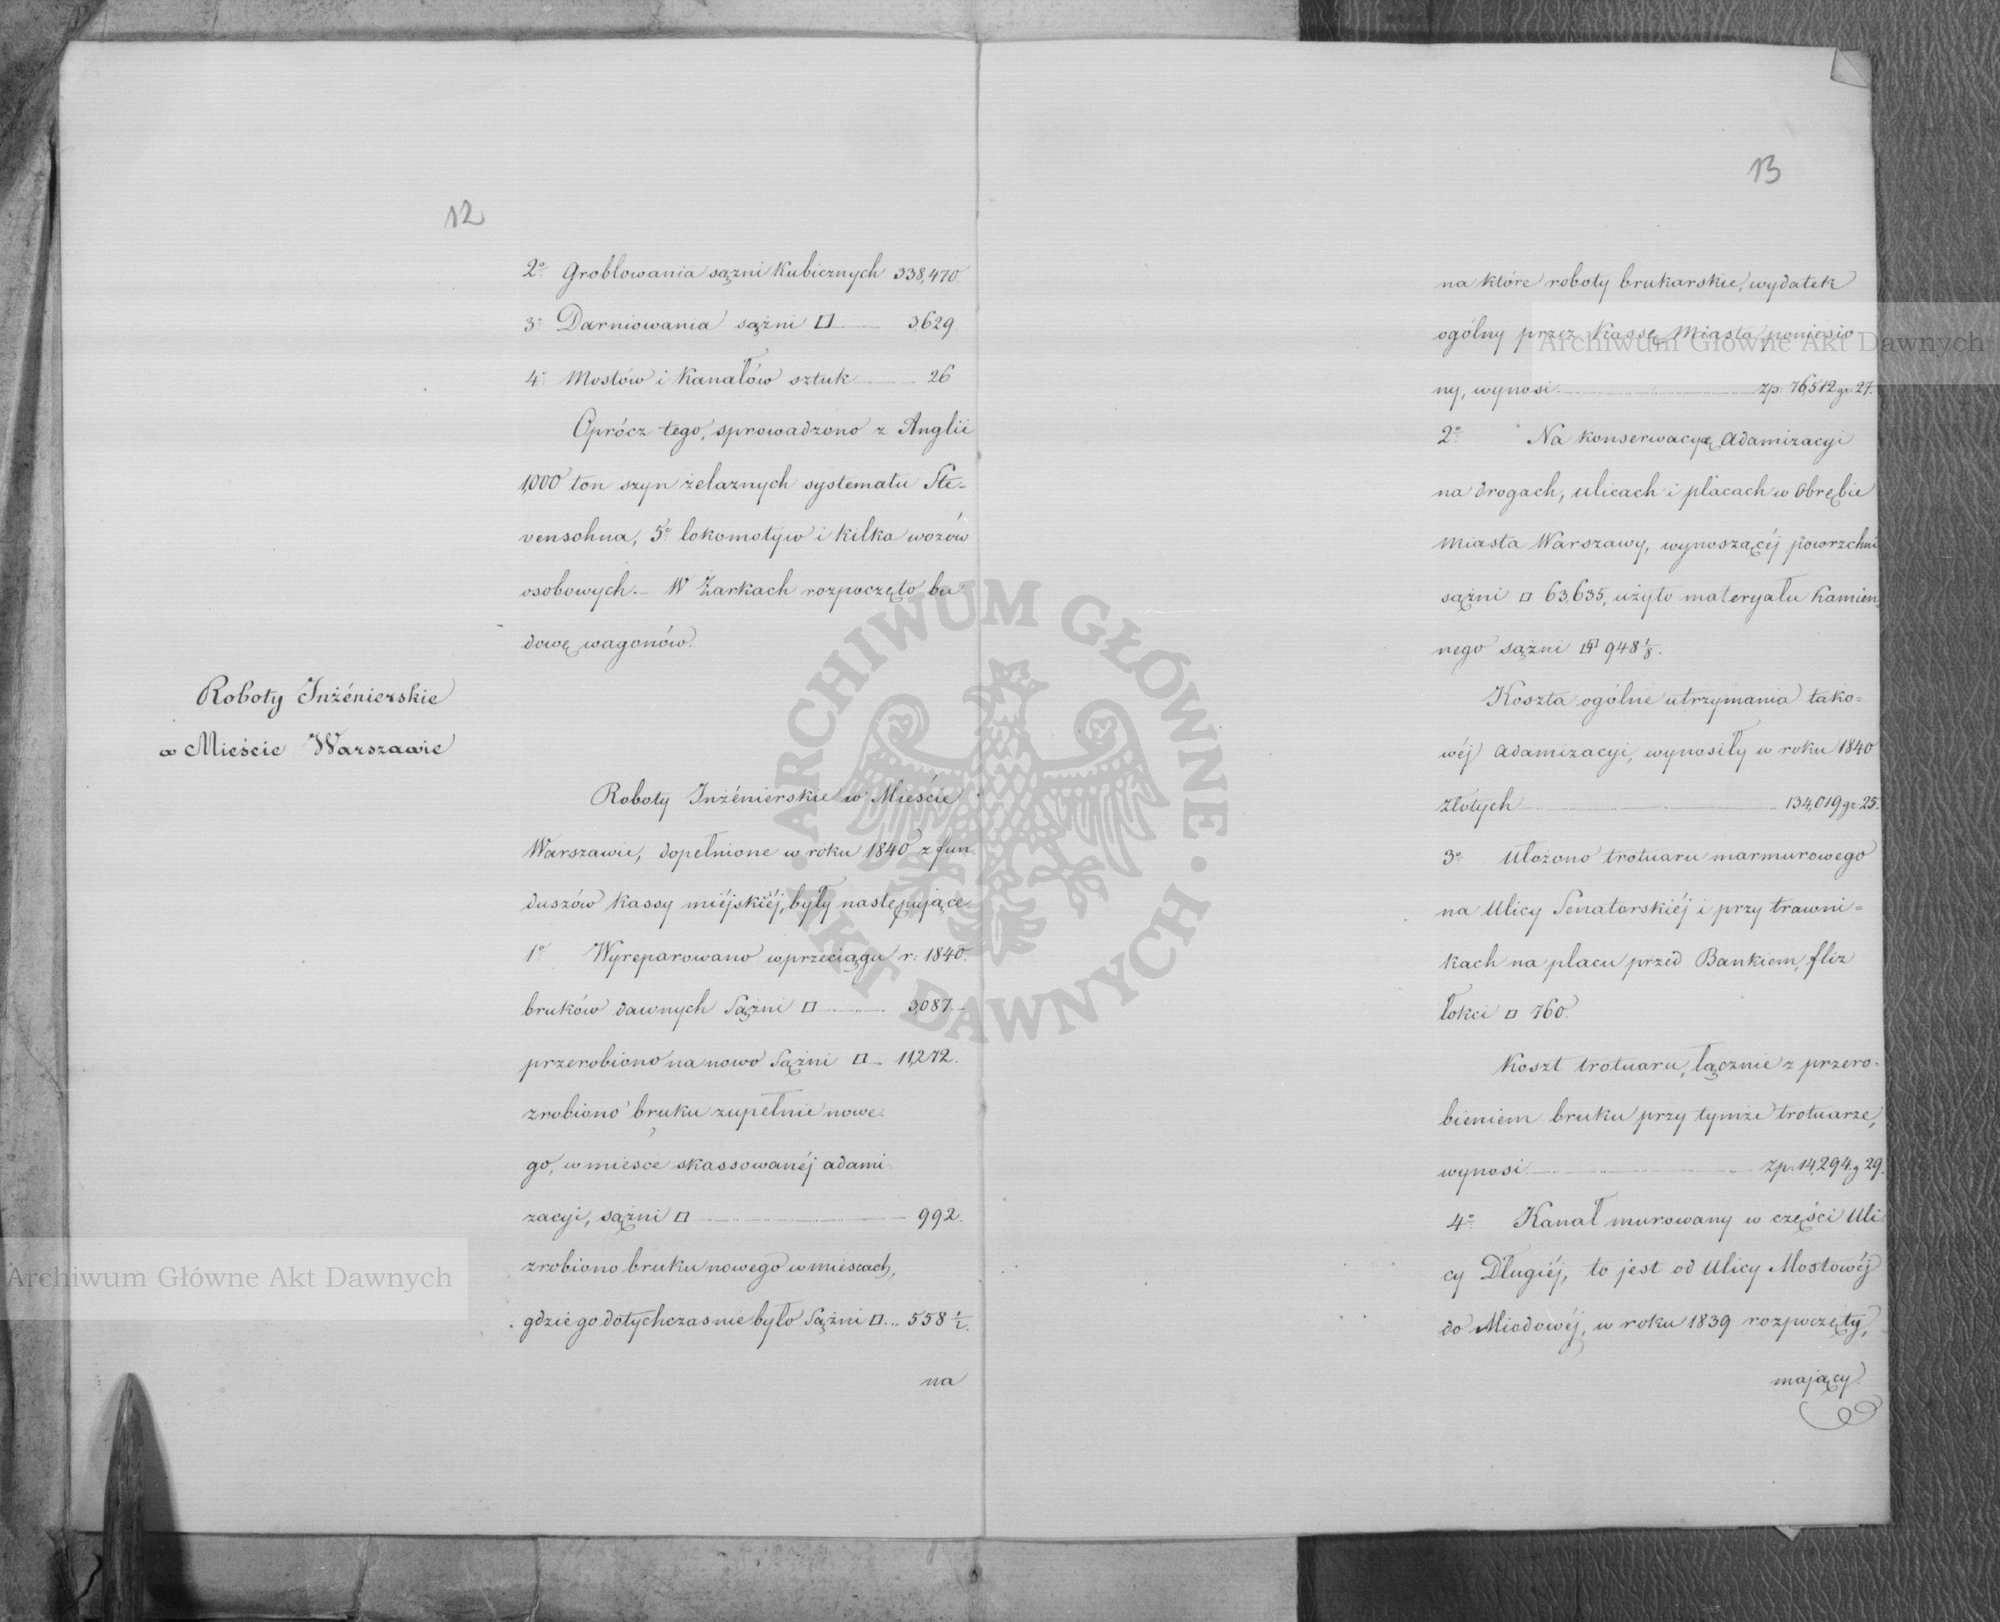 12
2o Groblowania sążni Kubicznych 338,470.
3o Darniowania sążni □ 3629.
4o Mostów i Kanałów sztuk 26
Oprócz tego, sprowadzono z Anglii
1,000 ton szyn żelaznych systematu Ste-
vensohna, 5o lokomotyw i kilka wozów
osobowych. – W Żarkach rozpoczęto bu
dowę wagonów.
Roboty Inżénierskie
w Mieście Warszawie
Roboty Inżénierskie w Mieście
Warszawie, dopełnione w roku 1840 z fun
duszów kassy miéjskiéj, były następujące
1o Wyreparowano w przeciągu r: 1840.
bruków dawnych Sążni □ 3,087
przerobiono na nowo Sążni □ 11,272.
zrobiono bruku zupełnie nowe
go, w miesce skassowanéj adami
zacyi, sążni □ 992.
zrobiono bruku nowego w miescach,
gdzie go dotychczas nie było Sążni □ 558 ½.
na
13
na które roboty brukarskie, wydatek
ogólny przez Kassę Miasta poniesio
ny, wynosi zp. 76,512 gr 27.
2o Na konserwacyę adamizacyi
na drogach, ulicach i placach w obrębie
Miasta Warszawy, wynoszącéj powrzchni
sążni □ 63,635, użyto materyału Kamien
nego sążni 948 ⅛.
Koszta ogólne utrzymania tako=
wéj adamizacyi, wynosiły w roku 1840
złotych 134,019 gr 25.
3o Ułożono trotuaru marmurowego
na Ulicy Senatorskiéj i przy trawni=
kach na placu przed Bankiem, fliz
łokci □ 760.
Koszt trotuaru, łącznie z przero-
bieniem bruku przy tymże trotuarze,
wynosi zp. 14,294. g 29.
4o Kanał murowany w części Uli
cy Długiéj, to jest od Ulicy Mostowéj
do Miodowéj, w roku 1839 rozpoczęty,
mający
Archiwum Główne Akt Dawnych
Archiwum Główne Akt Dawnych
ARCHIWUM GŁÓWNE · AKT DAWNYCH ·